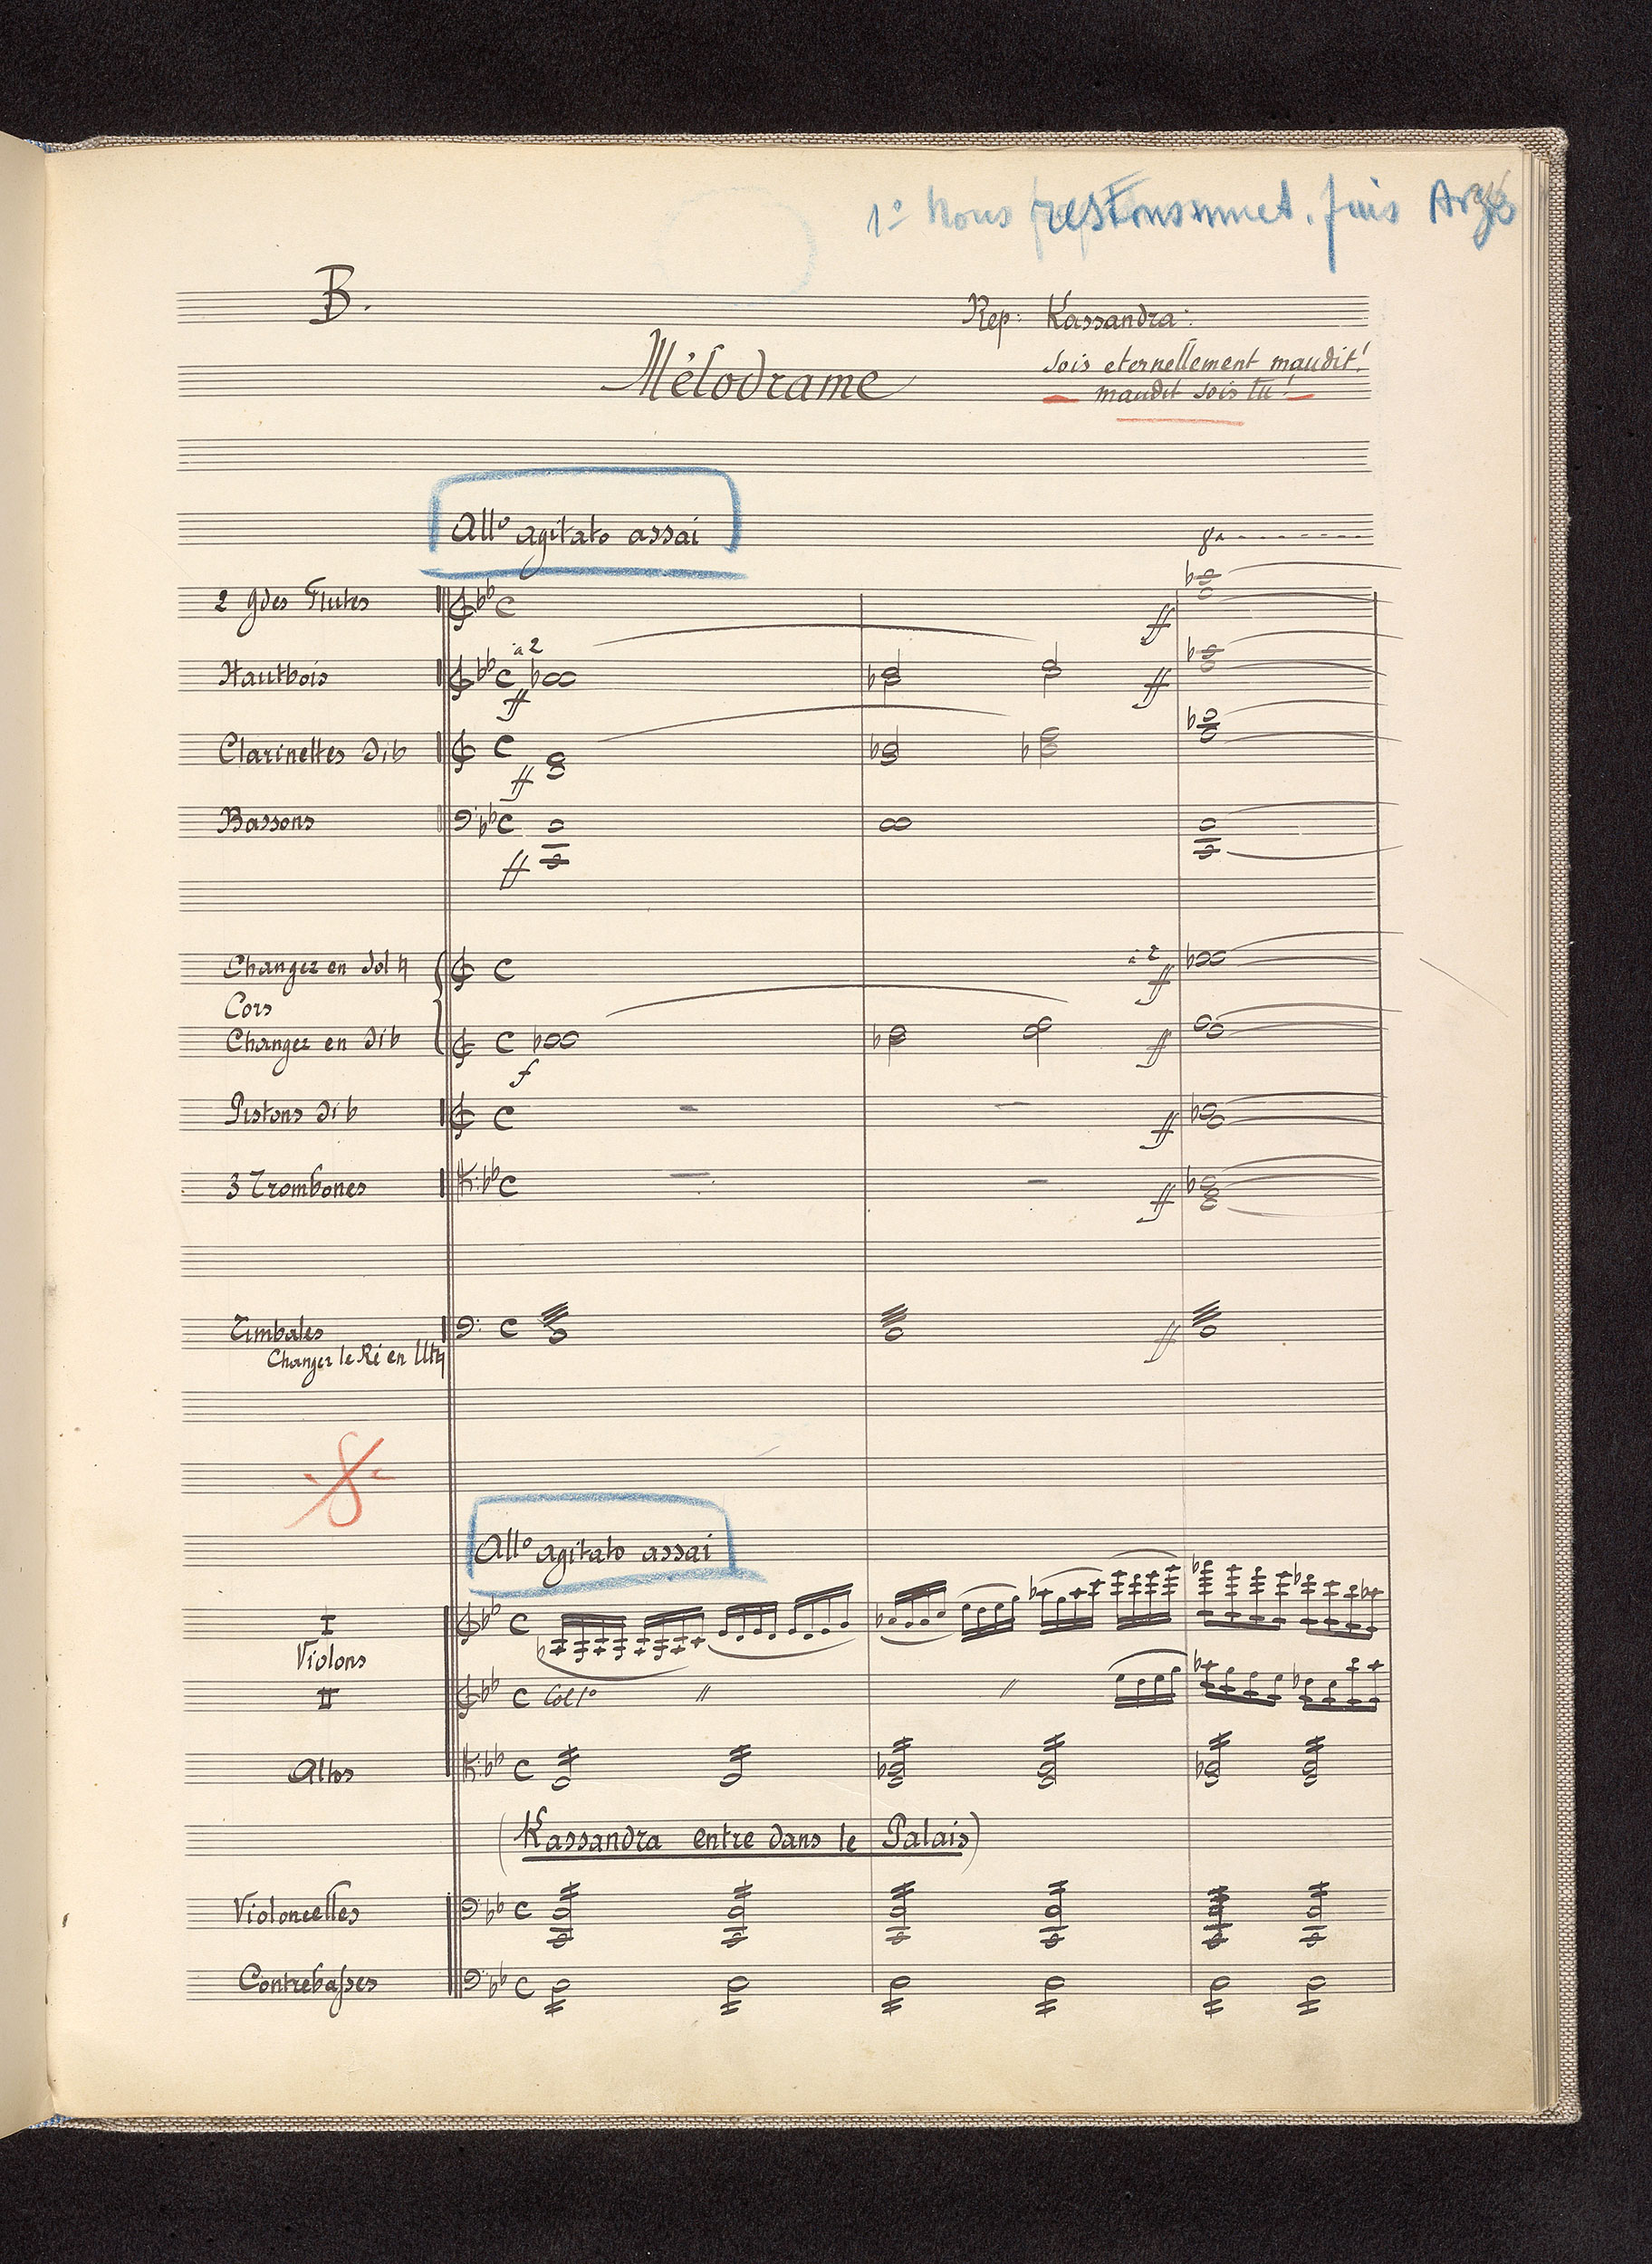 1º Nous
B.
Rep: Kassandra:
Sois eternellement maudit!
Mélodrame
maudit sois tu!
Allº agitato assai
8ª
2 gdes Flutes
ff
à 2
Hautbois
ff
ff
Clarinettes sib
ff
Bassons
ff
à 2
Changez en Sol ♮
ff
Cors
Changez en sib
f
ff
Pistons sib
ff
3 Trombones
ff
Timbales
ff
Changez le Ré en Ut♮
Allº agitato assai
I
Violons
II
Col 1º
Altos
(Kassandra entre dans le Palais)
Violoncelles
Contrebasses